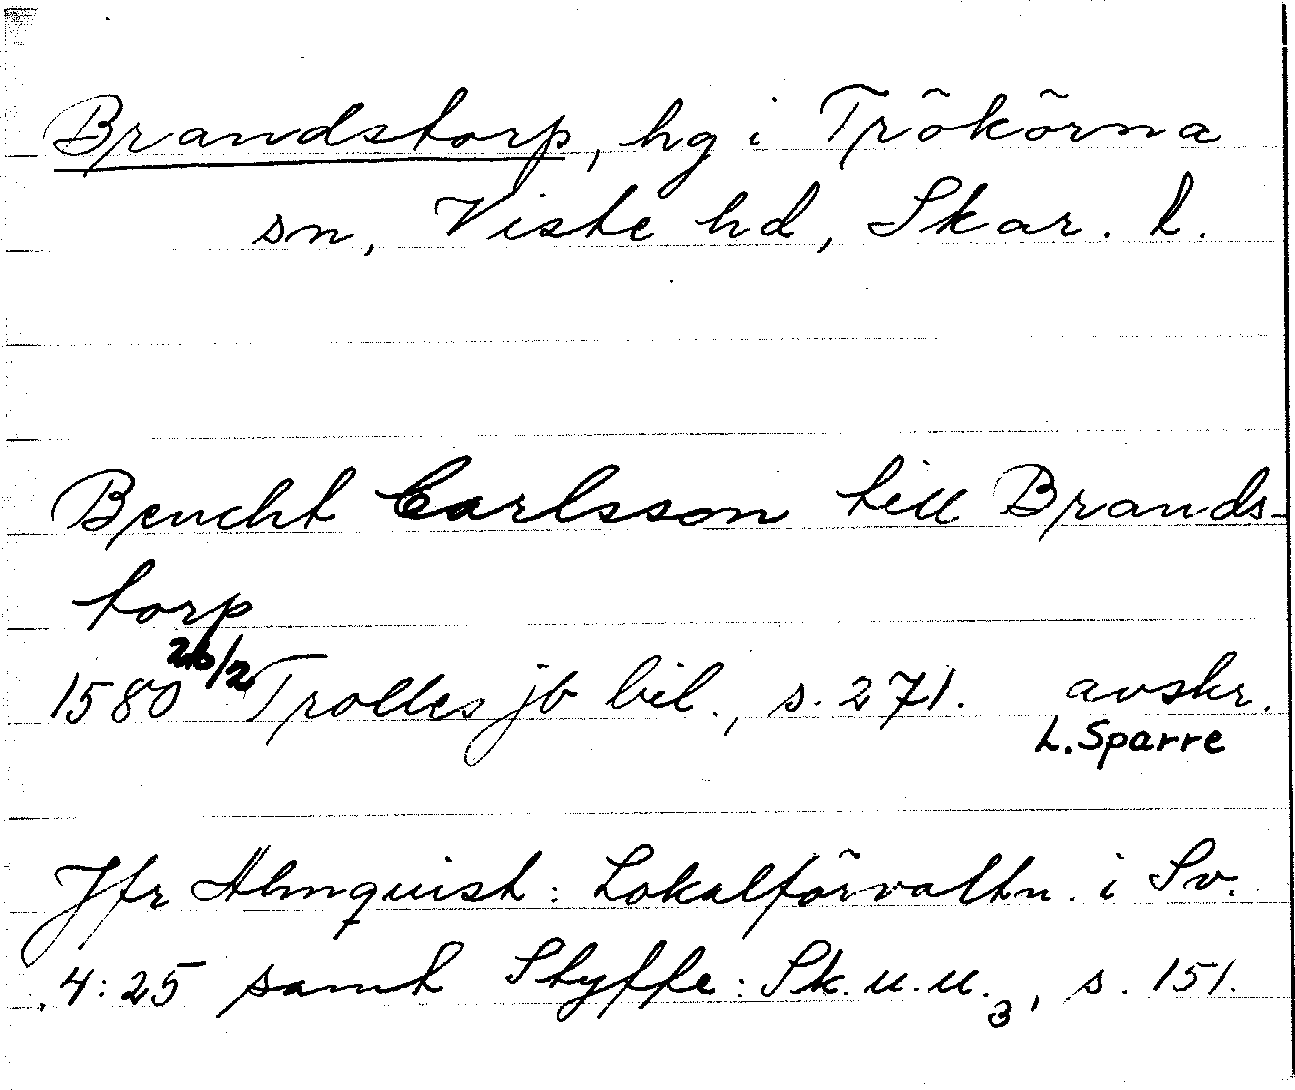 Brandstorp, hg i Trökörna
sn, Viste hd, Skar. l.
Bencht Carlsson till Brands-
torp
1580 26/2 Trolles jb bil., s. 271. avskr.
L. Sparre
Jfr Almquist: Lokalförvaltn. i Sv.
4:25 samt Styffe: Sk. u. u. 3, s. 151.